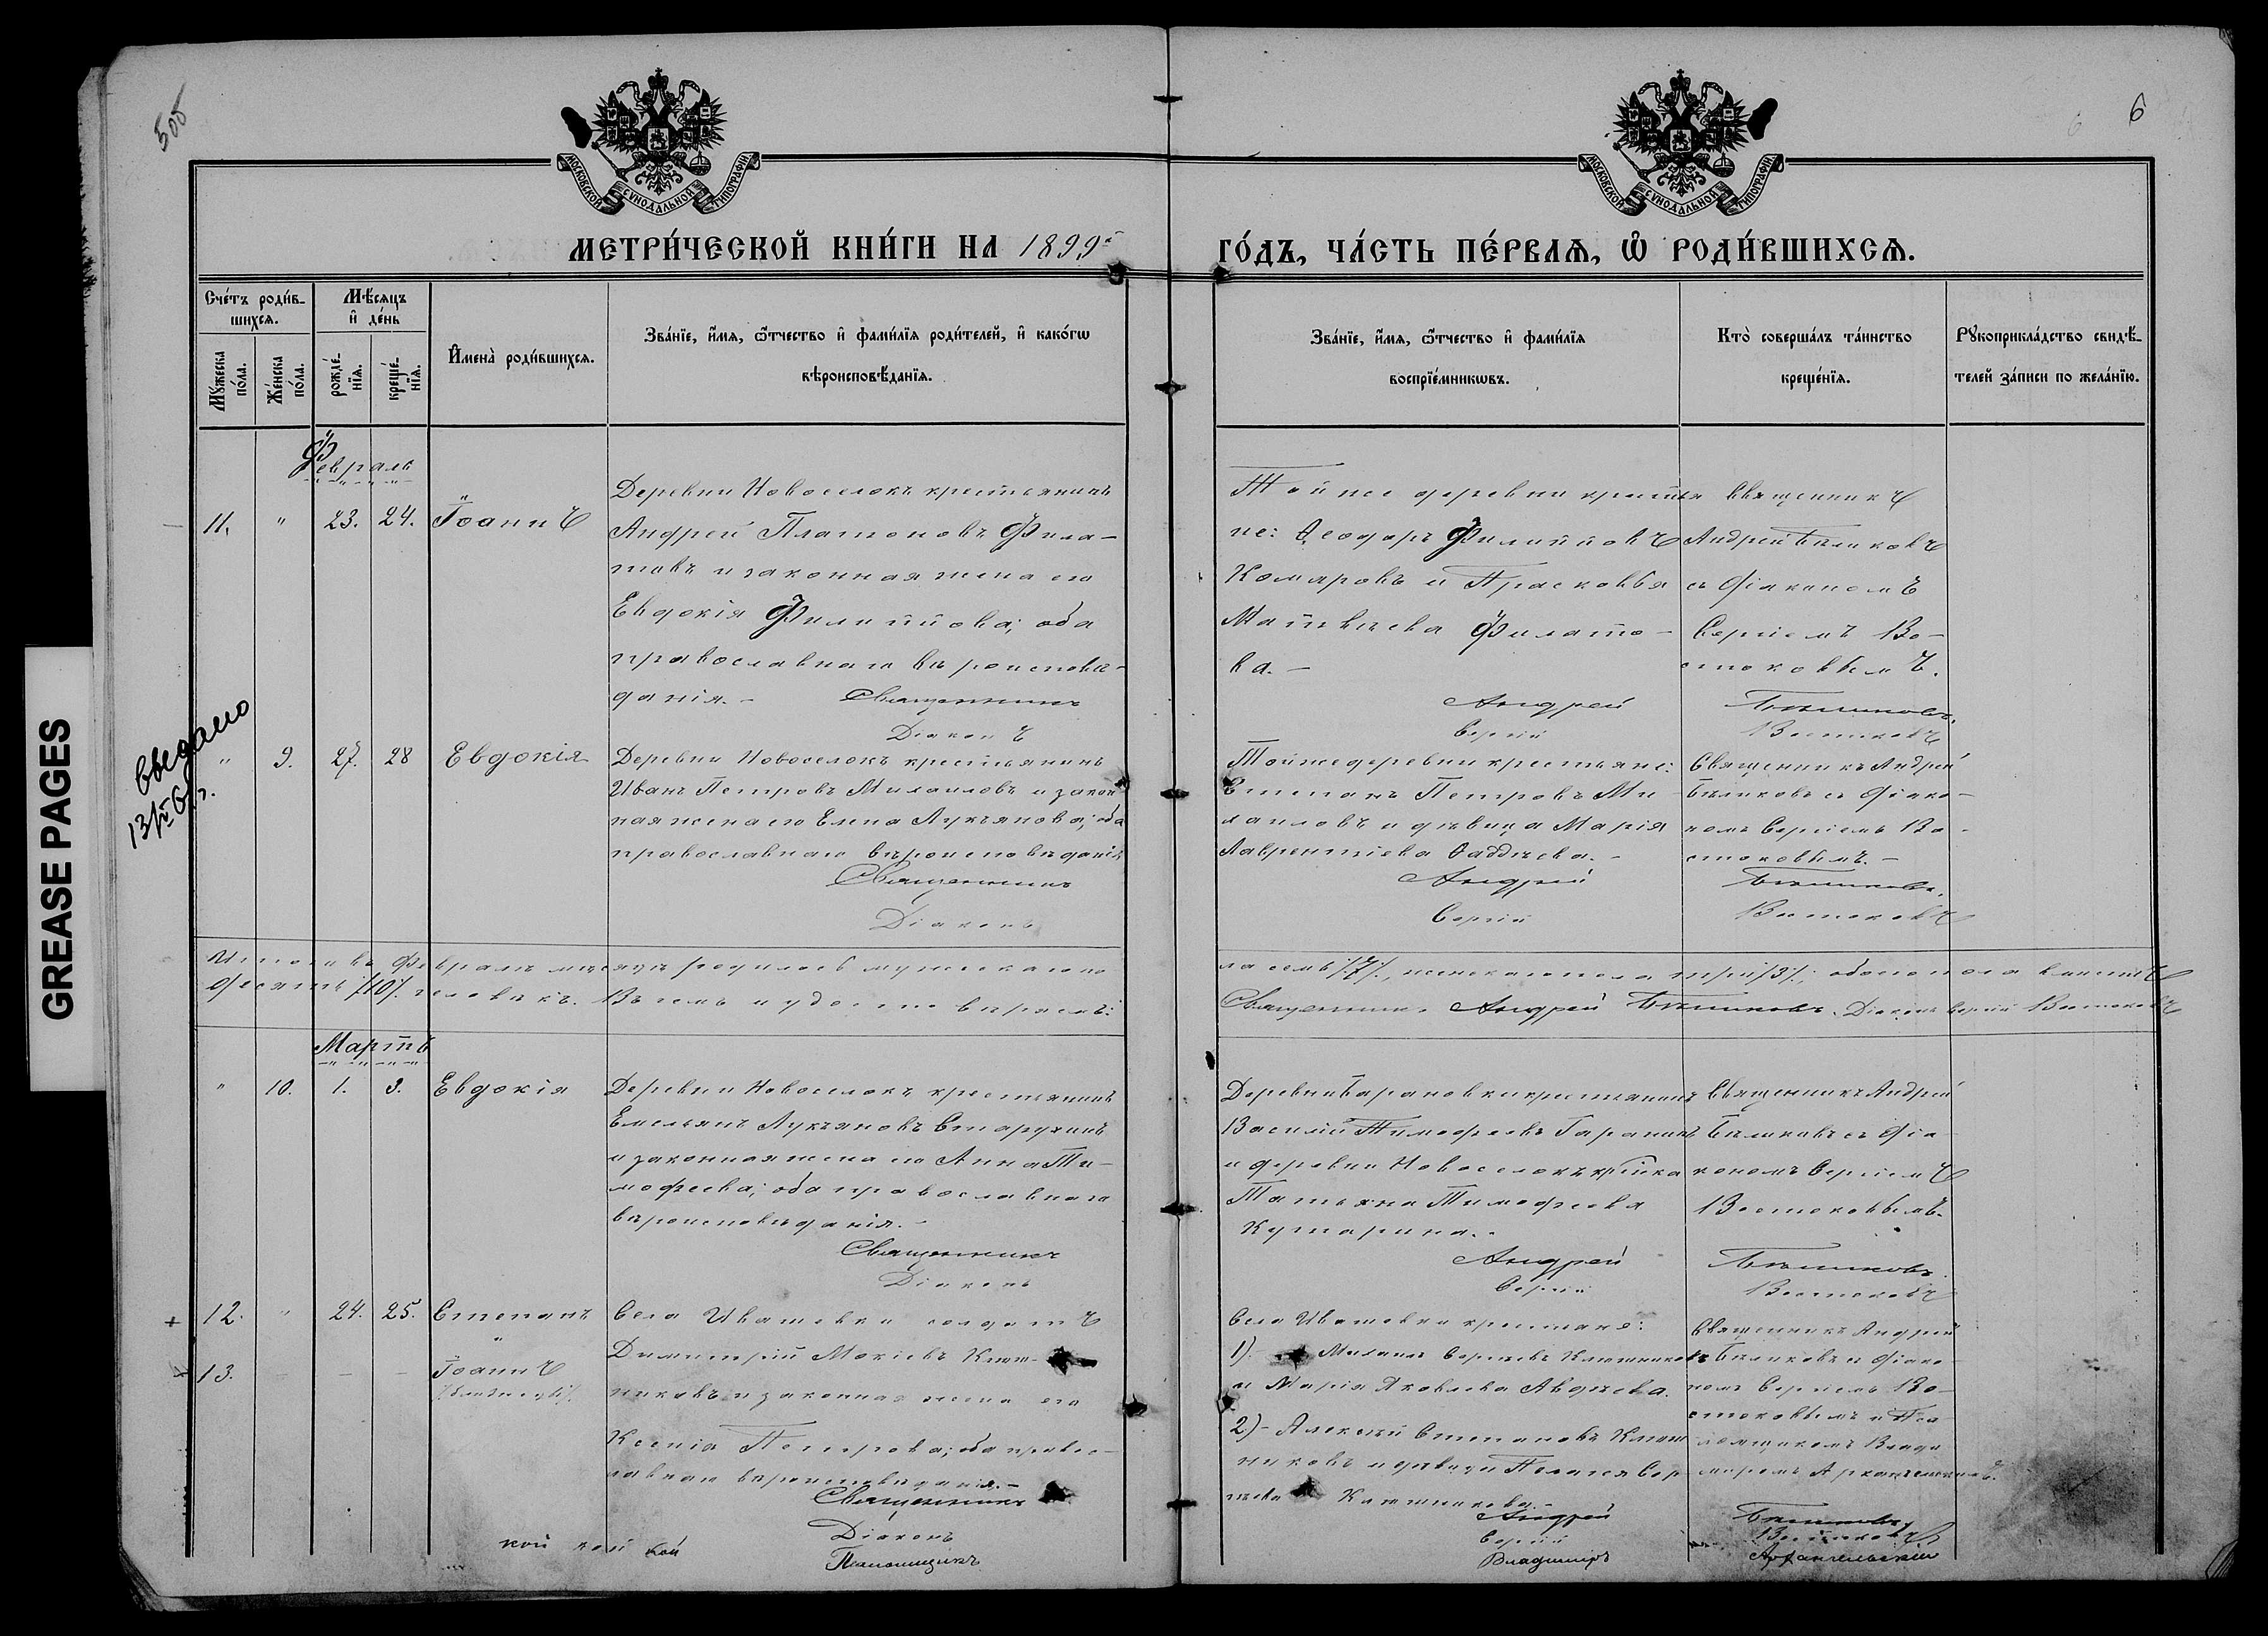 505
6
6
МОСКОВСКОЙ СѴНОДАЛЬНОЙ ТИПОГРАФІИ
МОСКОВСКОЙ СѴНОДАЛЬНОЙ ТИПОГРАФІИ
МЕТРИ́ЧЕСКОЙ КНИ́ГИ НА 1899й
ГО́ДЪ, ЧА́СТЬ ПЕ́РВАѦ, Ѡ҆ РОДИ́ВШИХСѦ.
Сче́тъ роди́в-
шихсѧ.
Мѣ́сѧцъ
и҆ де́нь
Мꙋ́жеска
по́ла.
Же́нска
по́ла.
рожде́-
нїѧ.
креще́-
нїѧ.
И҆мена̀ роди́вшихсѧ.
Зва́нїе, и҆́мѧ, ѻ҆́тчество и҆ фами́лїѧ роди́телей, и҆ како́гѡ
вѣроисповѣ́данїѧ.
Зва́нїе, и҆́мѧ, ѻ҆́тчество и҆ фами́лїѧ
воспрїе́мникѡвъ.
Кто̀ соверша́лъ та́инство
креще́нїѧ.
Рꙋкоприкла́дство свидѣ́-
телей за́писи по жела́нїю.
Февраль
11. " 23. 24. Іоаннъ
Деревни Новоселокъ крестьянинъ
Андрей Платоновъ Фила-
товъ и законная жена его
Евдокія Филиппова; оба
православнаго вѣроисповѣ-
данія.-
Священникъ
Діаконъ
Той же деревни крестья
не: Ѳеодоръ Филипповъ
Комаровъ и Прасковья
Матвѣева Филато-
ва.-
Андрей
Сергій
Священникъ
Андрей Бѣликовъ
съ діакономъ
Сергіемъ Во-
стоковымъ.
Бѣликовъ.
Востоковъ
Введено
" 9. 27. 28 Евдокія
Деревни Новоселокъ крестьянинъ
Иванъ Петровъ Михаиловъ и закон
ная жена его Елена Лукъянова; оба
православнаго вѣроисповѣданія
Священникъ
Діаконъ
Той же деревни крестьяне:
Степанъ Петровъ Ми-
хаиловъ и дѣвица Марія
Лаврентіева Фаддѣева.-
Андрей
Сергій
Священникъ Андрей
Бѣликовъ съ діако-
номъ Сергіемъ Во-
стоковымъ.-
Бѣликовъ.
Востоковъ
Итого въ Февралѣ мѣсяцѣ родилось мужескаго по
ла семь /7/, женскаго пола три /3/; обоего пола вмѣстѣ
десять /10/ человѣкъ. Въ чемъ и удостовѣряемъ:
Священникъ Андрей Бѣликовъ. Діаконъ Сергій Востоковъ
Мартъ
" 10. 1. 3. Евдокія
Деревни Новоселокъ крестьянинъ
Емельянъ Лукъяновъ Старухинъ
и законная жена его Анна Ти-
мофеева; оба православнаго
вѣроисповѣданія.-
Священникъ
Діаконъ
Деревни Барановки крестьянинъ
Василій Тимофеевъ Гаранинъ
и деревни Новоселокъ кр-ка
Татьяна Тимофеева
Кутарина.-
Андрей
Сергій
Священникъ Андрей
Бѣликовъ съ діа-
кономъ Сергіемъ
Востоковымъ.
Бѣликовъ.
Востоковъ
+ 12. " 24. 25. Степанъ
+ 13. - - - Іоаннъ
/близнецы/.
Села Ивашевки солдатъ
Димитрій Мокіевъ Ключ-
никовъ и законная жена его
Ксенія Петрова; оба правос-
лавнаго вѣроисповѣданія.-
Священникъ
Діаконъ
Псаломщикъ
Села Ивашевки крестьяне:
1). Михаилъ Сергѣевъ Ключниковъ
и Марія Яковлева Авдѣева.
2)- Алексѣй Степановъ Ключ
никовъ и дѣвица Пелагея Сер
гѣева Ключникова.-
Андрей
Сергій
Владиміръ
Священникъ Андрей
Бѣликовъ съ діако-
номъ Сергіемъ Во-
стоковымъ и Пса-
ломщикомъ Влади
міромъ Архангельскимъ.
Бѣликовъ.
Востоковъ
Архангельскій
кой кой кой
GREASE PAGES